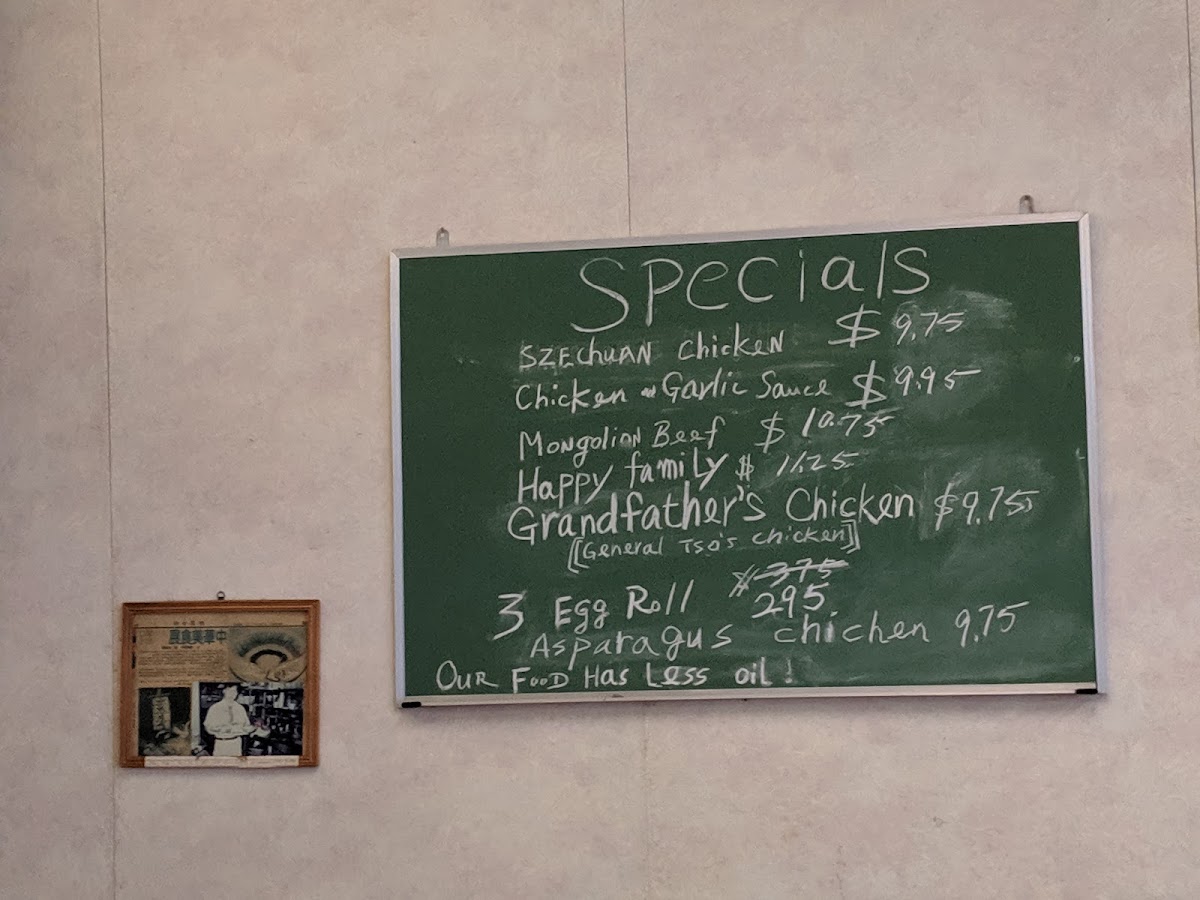 Specials
SZEChUAN chickeN $ 9.75
Chicken w Garlic Sauce $ 9.95
MongoliaN Beef $ 10.75
Happy family $ 11.25
Grandfather's Chicken $9.75
[General Tso's chicken]
3 Egg Roll $375
295
Asparagus chichen 9.75
OUR FOOD Has Less oil !
風食美華中